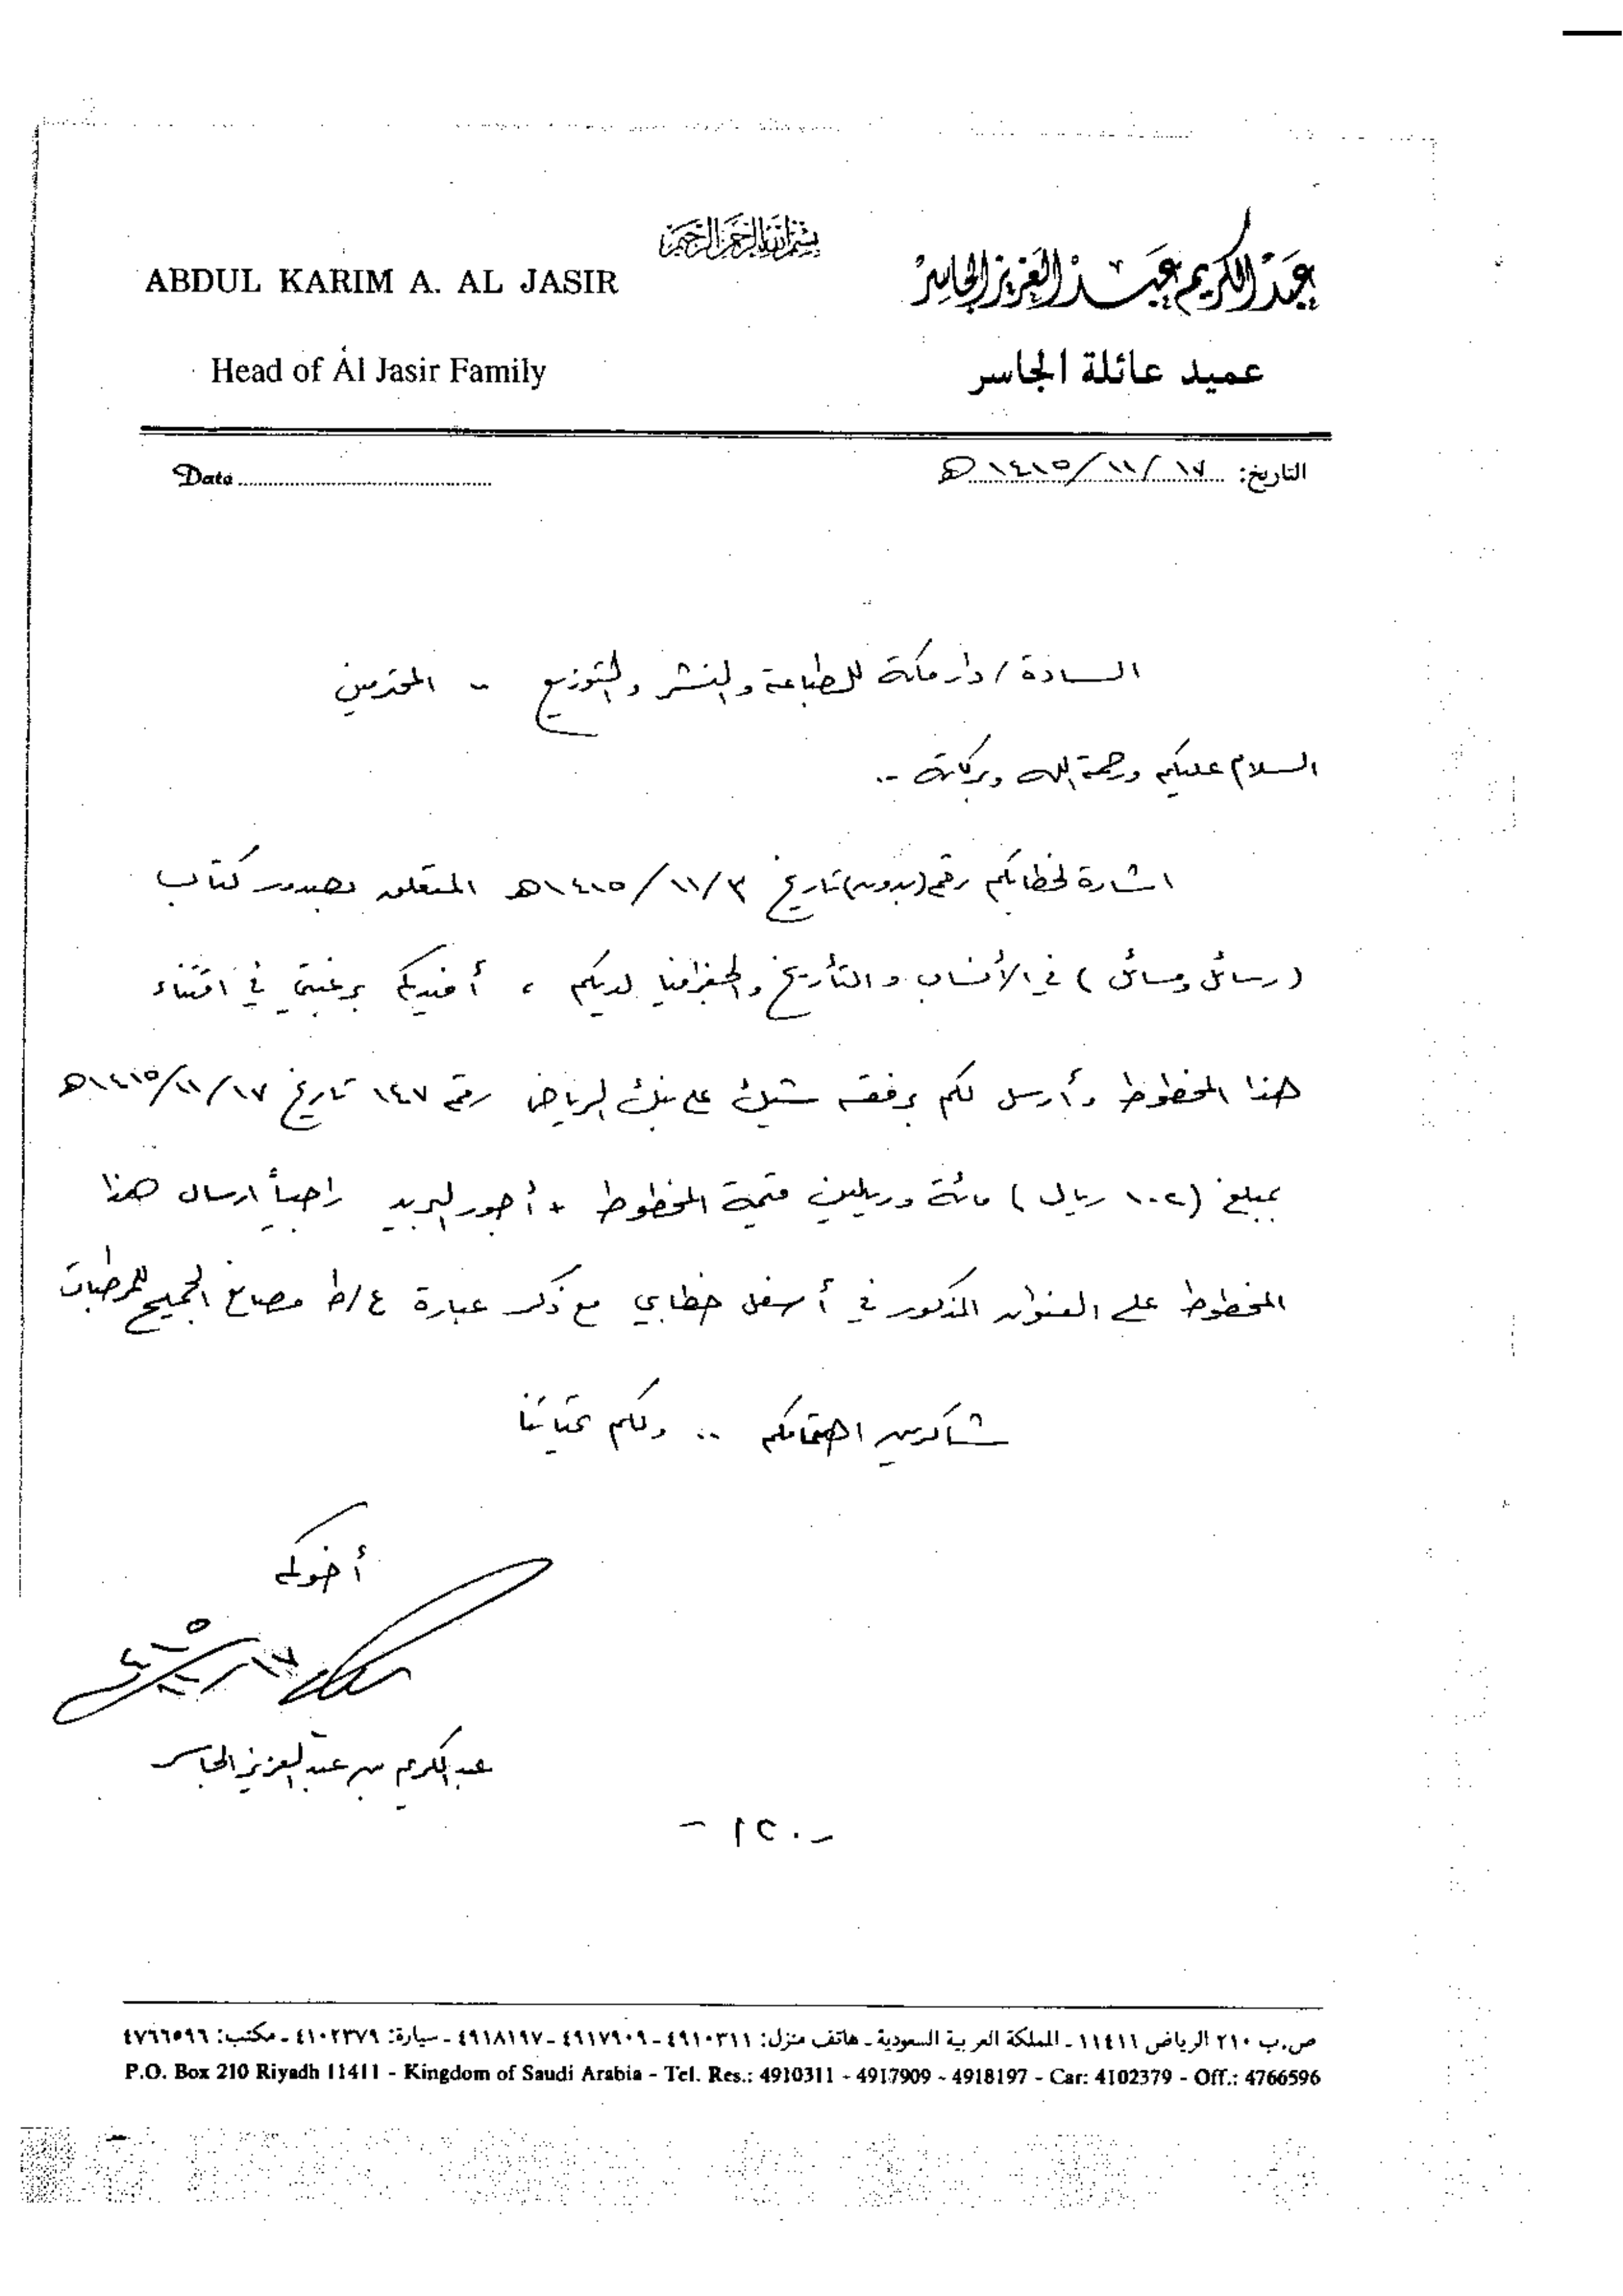 بسم الله الرحمن الرحيم
ABDUL KARIM A. AL JASIR
عبد الكريم عبد العزيز الجاسر
Head of Al Jasir Family
عميد عائلة الجاسر
Date
التاريخ: ١٧/ ١١/ ١٤١٥ هـ
السادة / دار مكة للطباعة والنشر والتوزيع .. المحترمين
السلام عليكم ورحمة الله وبركاته ..
اشارة لخطابكم رقم (بدون) تاريخ ٣/ ١١/ ١٤١٥هـ المتعلق بصدور كتاب
(رسائل ومسائل) في الأنساب والتأريخ والجغرافيا لديكم ، أفيدكم برغبتي في اقتناء
هذا المخطوط وأرسل لكم برفقه شيك على بنك الرياض رقم ١٤٧ تاريخ ١٧/ ١١/ ١٤١٥هـ
بمبلغ (١٠٢ ريال) مائة وريالين قيمة المخطوط + أجور البريد راجياً ارسال هذا
المخطوط على العنوان المذكور في أسفل خطابي مع ذكر عبارة ع/ط مصانع الجميح للمرطبات
شاكرين اهتمامكم .. ولكم تحياتنا
أخوكم
١٧/ ١١/ ٤١٥
عبدالكريم بن عبدالعزيز الجاسر
- ١٢٠ -
ص.ب ٢١٠ الرياض ١١٤١١ - المملكة العربية السعودية - هاتف منزل: ٤٩١٠٣١١ - ٤٩١٧٩٠٩ - ٤٩١٨١٩٧ - سيارة: ٤١٠٢٣٧٩ - مكتب: ٤٧٦٦٥٩٦
P.O. Box 210 Riyadh 11411 - Kingdom of Saudi Arabia - Tel. Res.: 4910311 - 4917909 - 4918197 - Car: 4102379 - Off.: 4766596